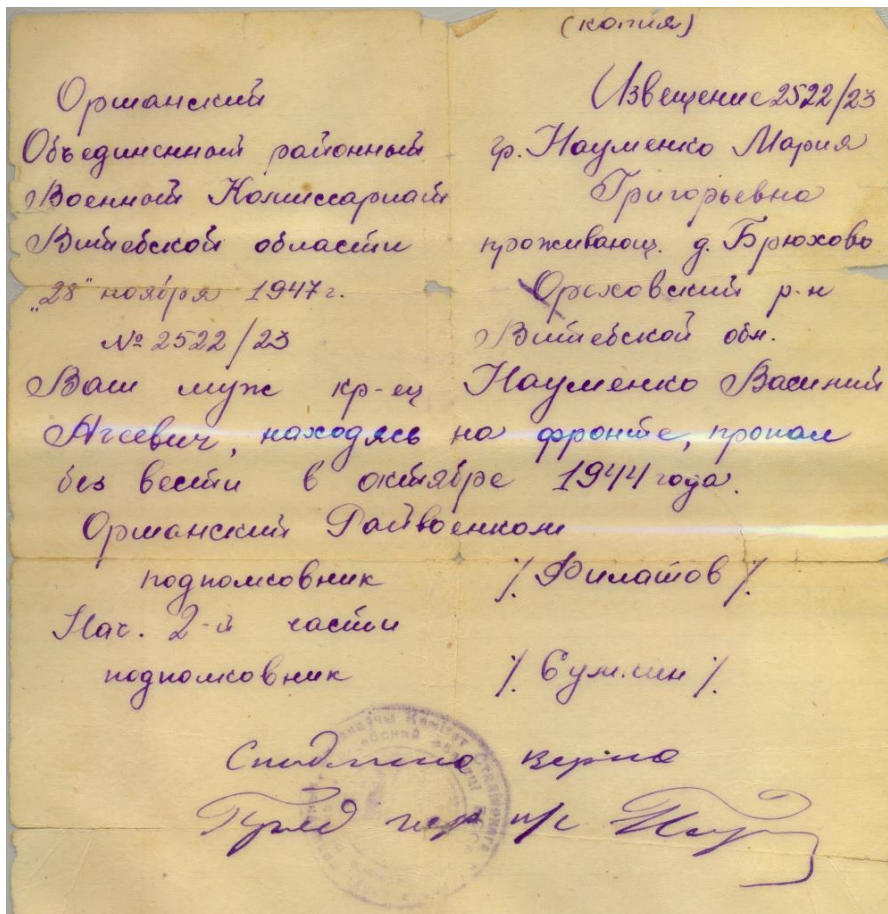 (копия)
Оршанский
Объединенный районный
Военный Комиссариат
Витебской области
"28" ноября 1947 г.
№ 2522/23
Извещение 2522/23
гр. Науменко Мария
Григорьевна
проживающ. д. Брюхово
Ореховский р-н
Витебской обл.
Ваш муж кр-ец Науменко Василий
находясь на фронте, пропал
без вести в октябре 1944 года.
Оршанский Райвоенком
подполковник /. Филатов /.
Нач. 2-й части
подполковник
верно